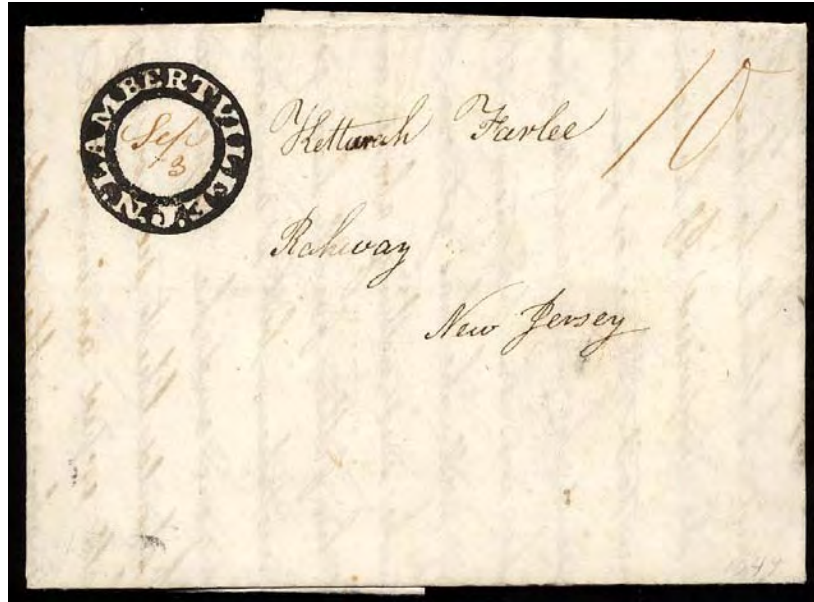 LAMBERTVILLE N.J.
Sep
3
10
Ketturah Farlee
Rahway
New Jersey